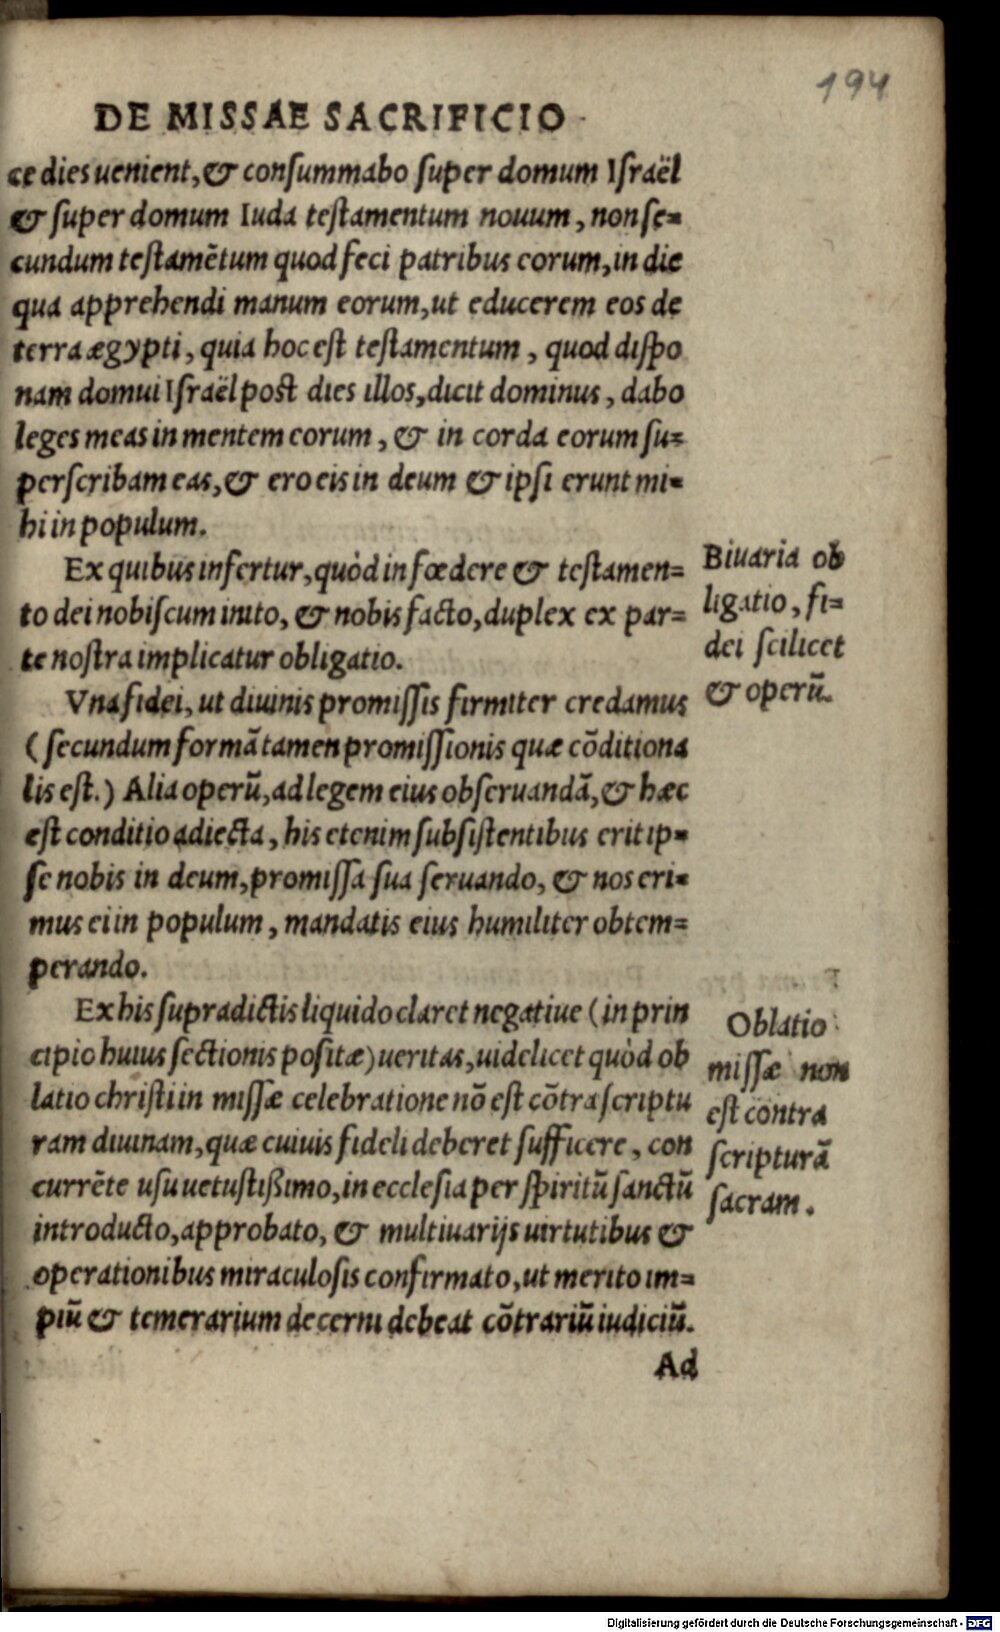 194
DE MISSAE SACRIFICIO
ce dies uenient, & consummabo super domum Israël
& super domum Iuda testamentum nouum, non se=
cundum testamẽtum quod feci patribus eorum, in die
qua apprehendi manum eorum, ut educerem eos de
terra ægypti, quia hoc est testamentum, quod dispo
nam domui Israël post dies illos, dicit dominus, dabo
leges meas in mentem eorum, & in corda eorum su=
perscribam eas, & ero eis in deum & ipsi erunt mi=
hi in populum.
Ex quibus infertur, quòd in fœdere & testamen=
to dei nobiscum inito, & nobis facto, duplex ex par=
te nostra implicatur obligatio.
Biuaria ob
ligatio, fi=
dei scilicet
& operũ.
Vna fidei, ut diuinis promissis firmiter credamus
(secundum formã tamen promissionis quæ cõditiona
lis est.) Alia operũ, ad legem eius obseruandã, & hæc
est conditio adiecta, his etenim subsistentibus erit ip=
se nobis in deum, promissa sua seruando, & nos eri=
mus ei in populum, mandatis eius humiliter obtem=
perando.
Ex his supradictis liquido claret negatiue (in prin
cipio huius sectionis positæ) ueritas, uidelicet quòd ob
latio christi in missæ celebratione nõ est cõtra scriptu
ram diuinam, quæ cuiuis fideli deberet sufficere, con
currẽte usu uetustißimo, in ecclesia per spiritũ sanctũ
introducto, approbato, & multiuarijs uirtutibus &
operationibus miraculosis confirmato, ut merito im=
piũ & temerarium decerni debeat cõtrariũ iudiciũ.
Oblatio
missæ non
est contra
scripturã
sacram.
Ad
Digitalisierung gefördert durch die Deutsche Forschungsgemeinschaft - DFG